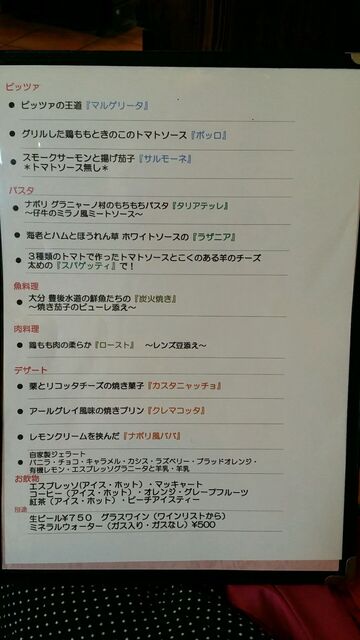 ピッツァ
ピッツァの王道『マルゲリータ』
グリルした鶏ももときのこのトマトソース『ポッロ』
スモークサーモンと揚げ茄子『サルモーネ』
＊トマトソース無し＊
パスタ
ナポリ グラニャーノ村のもちもちパスタ『タリアテッレ』
～仔牛のミラノ風ミートソース～
海老とハムとほうれん草 ホワイトソースの『ラザニア』
３種類のトマトで作ったトマトソースとこくのある羊のチーズ
太めの『スパゲッティ』で！
魚料理
大分 豊後水道の鮮魚たちの『炭火焼き』
～焼き茄子のピューレ添え～
肉料理
鶏もも肉の柔らか『ロースト』 ～レンズ豆添え～
デザート
栗とリコッタチーズの焼き菓子『カスタニャッチョ』
アールグレイ風味の焼きプリン『クレマコッタ』
レモンクリームを挟んだ『ナポリ風ババ』
自家製ジェラート
バニラ・チョコ・キャラメル・カシス・ラズベリー・ブラッドオレンジ・
有機レモン・エスプレッソグラニータと羊乳・羊乳
お飲物
エスプレッソ(アイス・ホット)・マッキャート
コーヒー（アイス・ホット）・オレンジ・グレープフルーツ
紅茶（アイス・ホット）・ピーチアイスティー
別途
生ビール¥７５０ グラスワイン（ワインリストから）
ミネラルウォーター（ガス入り・ガスなし）¥500